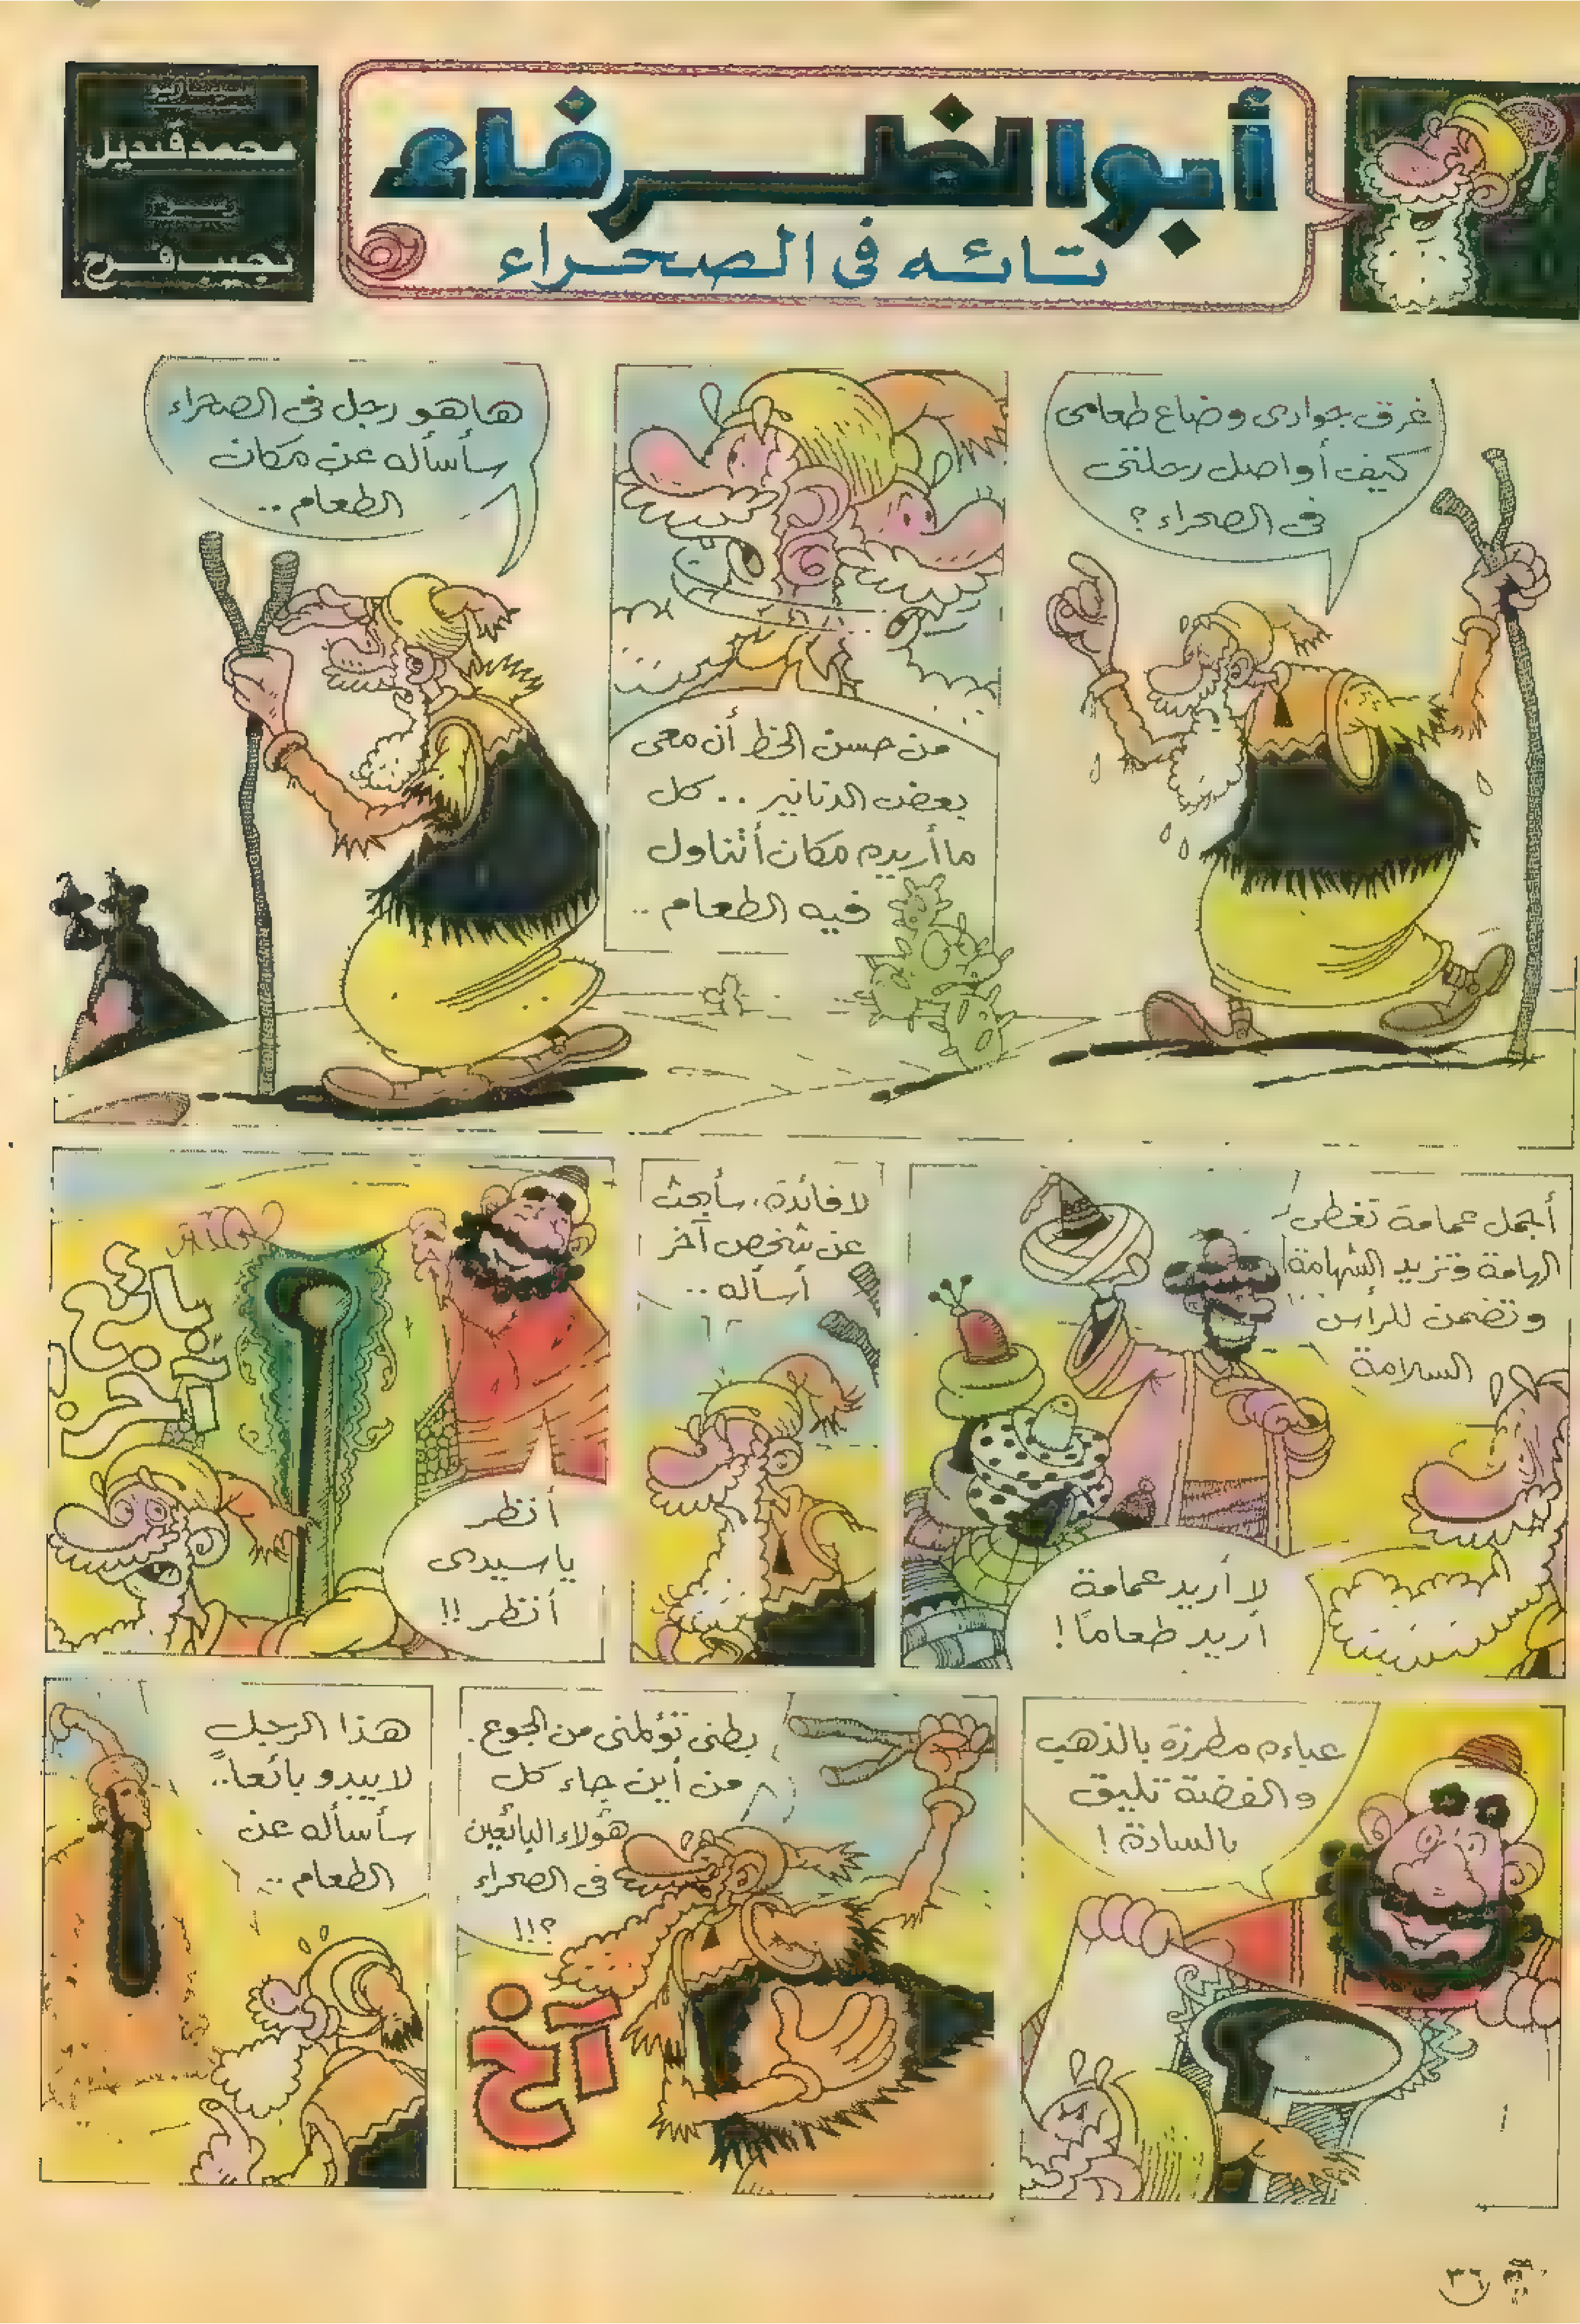 أبو الظرفاء
تائه فى الصحراء
سيناريو
محمد قنديل
نجيب فرح
غرق جوادى وضاع طعامى
كيف أواصل رحلتى
فى الصحراء ؟
من حسن الحظ أن معى
بعض الدنانير .. كل
ما أريده مكان أتناول
فيه الطعام ..
ها هو رجل فى الصحراء
سأسأله عن مكان
الطعام ..
أجمل عمامة تغطى
الهامة وتزيد الشهامة
وتضمن للرأس
السلامة
لا أريد عمامة
أريد طعامًا !
لا فائدة ، سأبحث
عن شخص آخر
أسأله ..
بائع
آخر !
أنظر
يا سيدى
أنظر !!
عباءه مطرزة بالذهب
والفضة تليق
بالسادة !
بطنى تؤلمنى من الجوع .
من أين جاء كل
هؤلاء البائعين
فى الصحراء
؟!!
آخ
هذا الرجل
لا يبدو بائعاً ..
سأسأله عن
الطعام ..
٣٦